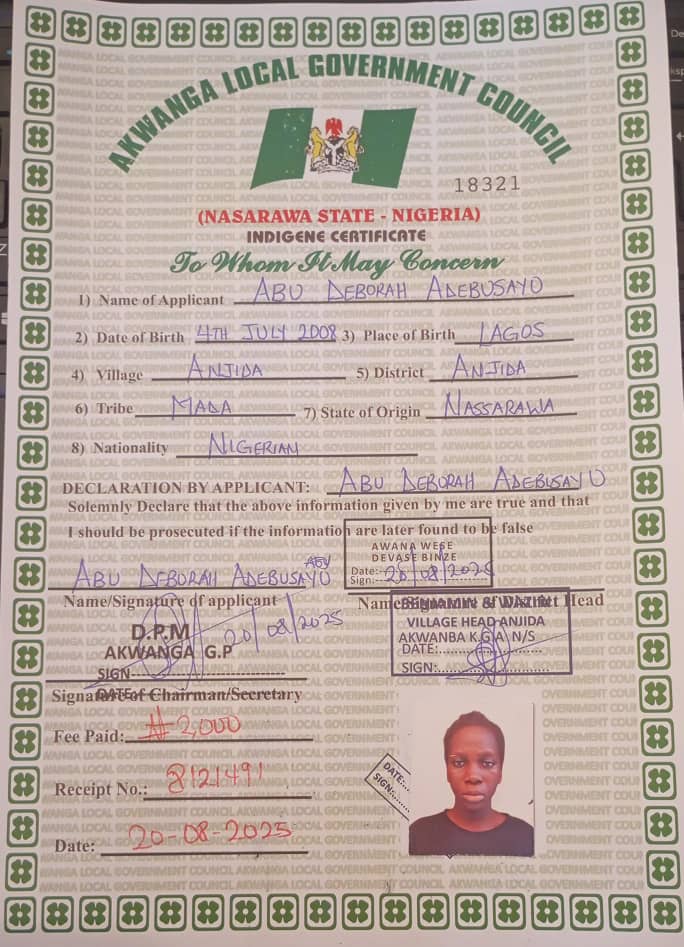 AKWANGA LOCAL GOVERNMENT COUNCIL
18321
(NASARAWA STATE - NIGERIA)
INDIGENE CERTIFICATE
To Whom It May Concern
1) Name of Applicant ABU DEBORAH ADEBUSAYO
2) Date of Birth 4TH JULY 2008 3) Place of Birth LAGOS
4) Village ANJIDA 5) District ANJIDA
6) Tribe MADA 7) State of Origin NASSARAWA
8) Nationality NIGERIAN
DECLARATION BY APPLICANT: ABU DEBORAH ADEBUSAYO
Solemnly Declare that the above information given by me are true and that
I should be prosecuted if the information are later found to be false
AWANA WESE
DEVASE BINZE
Date: 20/08/2025
Sign:
ABU DEBORAH ADEBUSAYO
Name/Signature of applicant
Name/Signature of District Head
VILLAGE HEAD ANJIDA
AKWANBA K.G.A N/S
DATE:
SIGN:
D.P.M
AKWANGA G.P
20/08/2025
SIGN
DATE
Signature of Chairman/Secretary
Fee Paid: ₦2,000
DATE:
SIGN:
Receipt No.: 8121491
Date: 20-08-2025